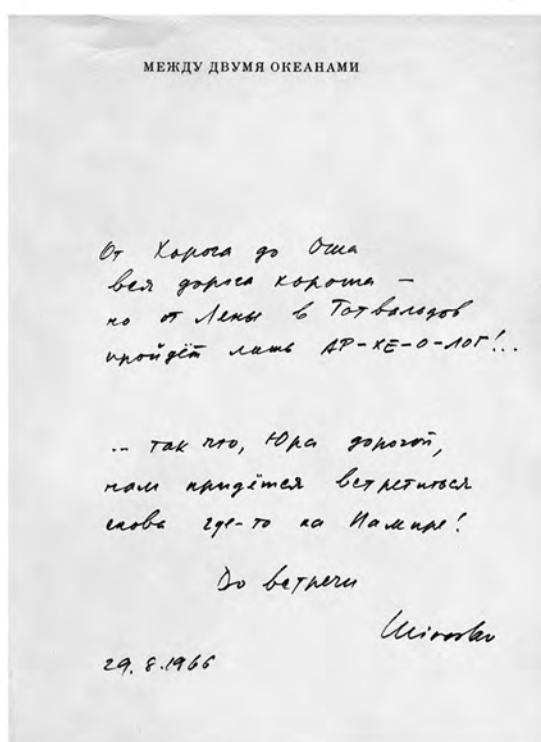 МЕЖДУ ДВУМЯ ОКЕАНАМИ
От Хорога до Оша
вся дорога хороша –
но от Лены в Готвальдов
пройдёт лишь АР-ХЕ-О-ЛОГ!..
.. так что, Юра дорогой,
нам придётся встретиться
снова где-то на Памире!
До встречи
Miroslav
29.8.1966